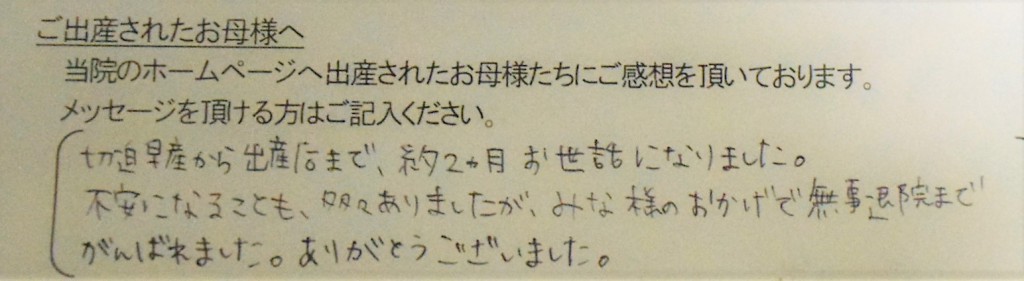 ご出産されたお母様へ
当院のホームページへ出産されたお母様たちにご感想を頂いております。
メッセージを頂ける方はご記入ください。
切迫早産から出産后まで、約2ヵ月お世話になりました。
不安になることも、多々ありましたが、みな様のおかげで無事退院まで
がんばれました。ありがとうございました。